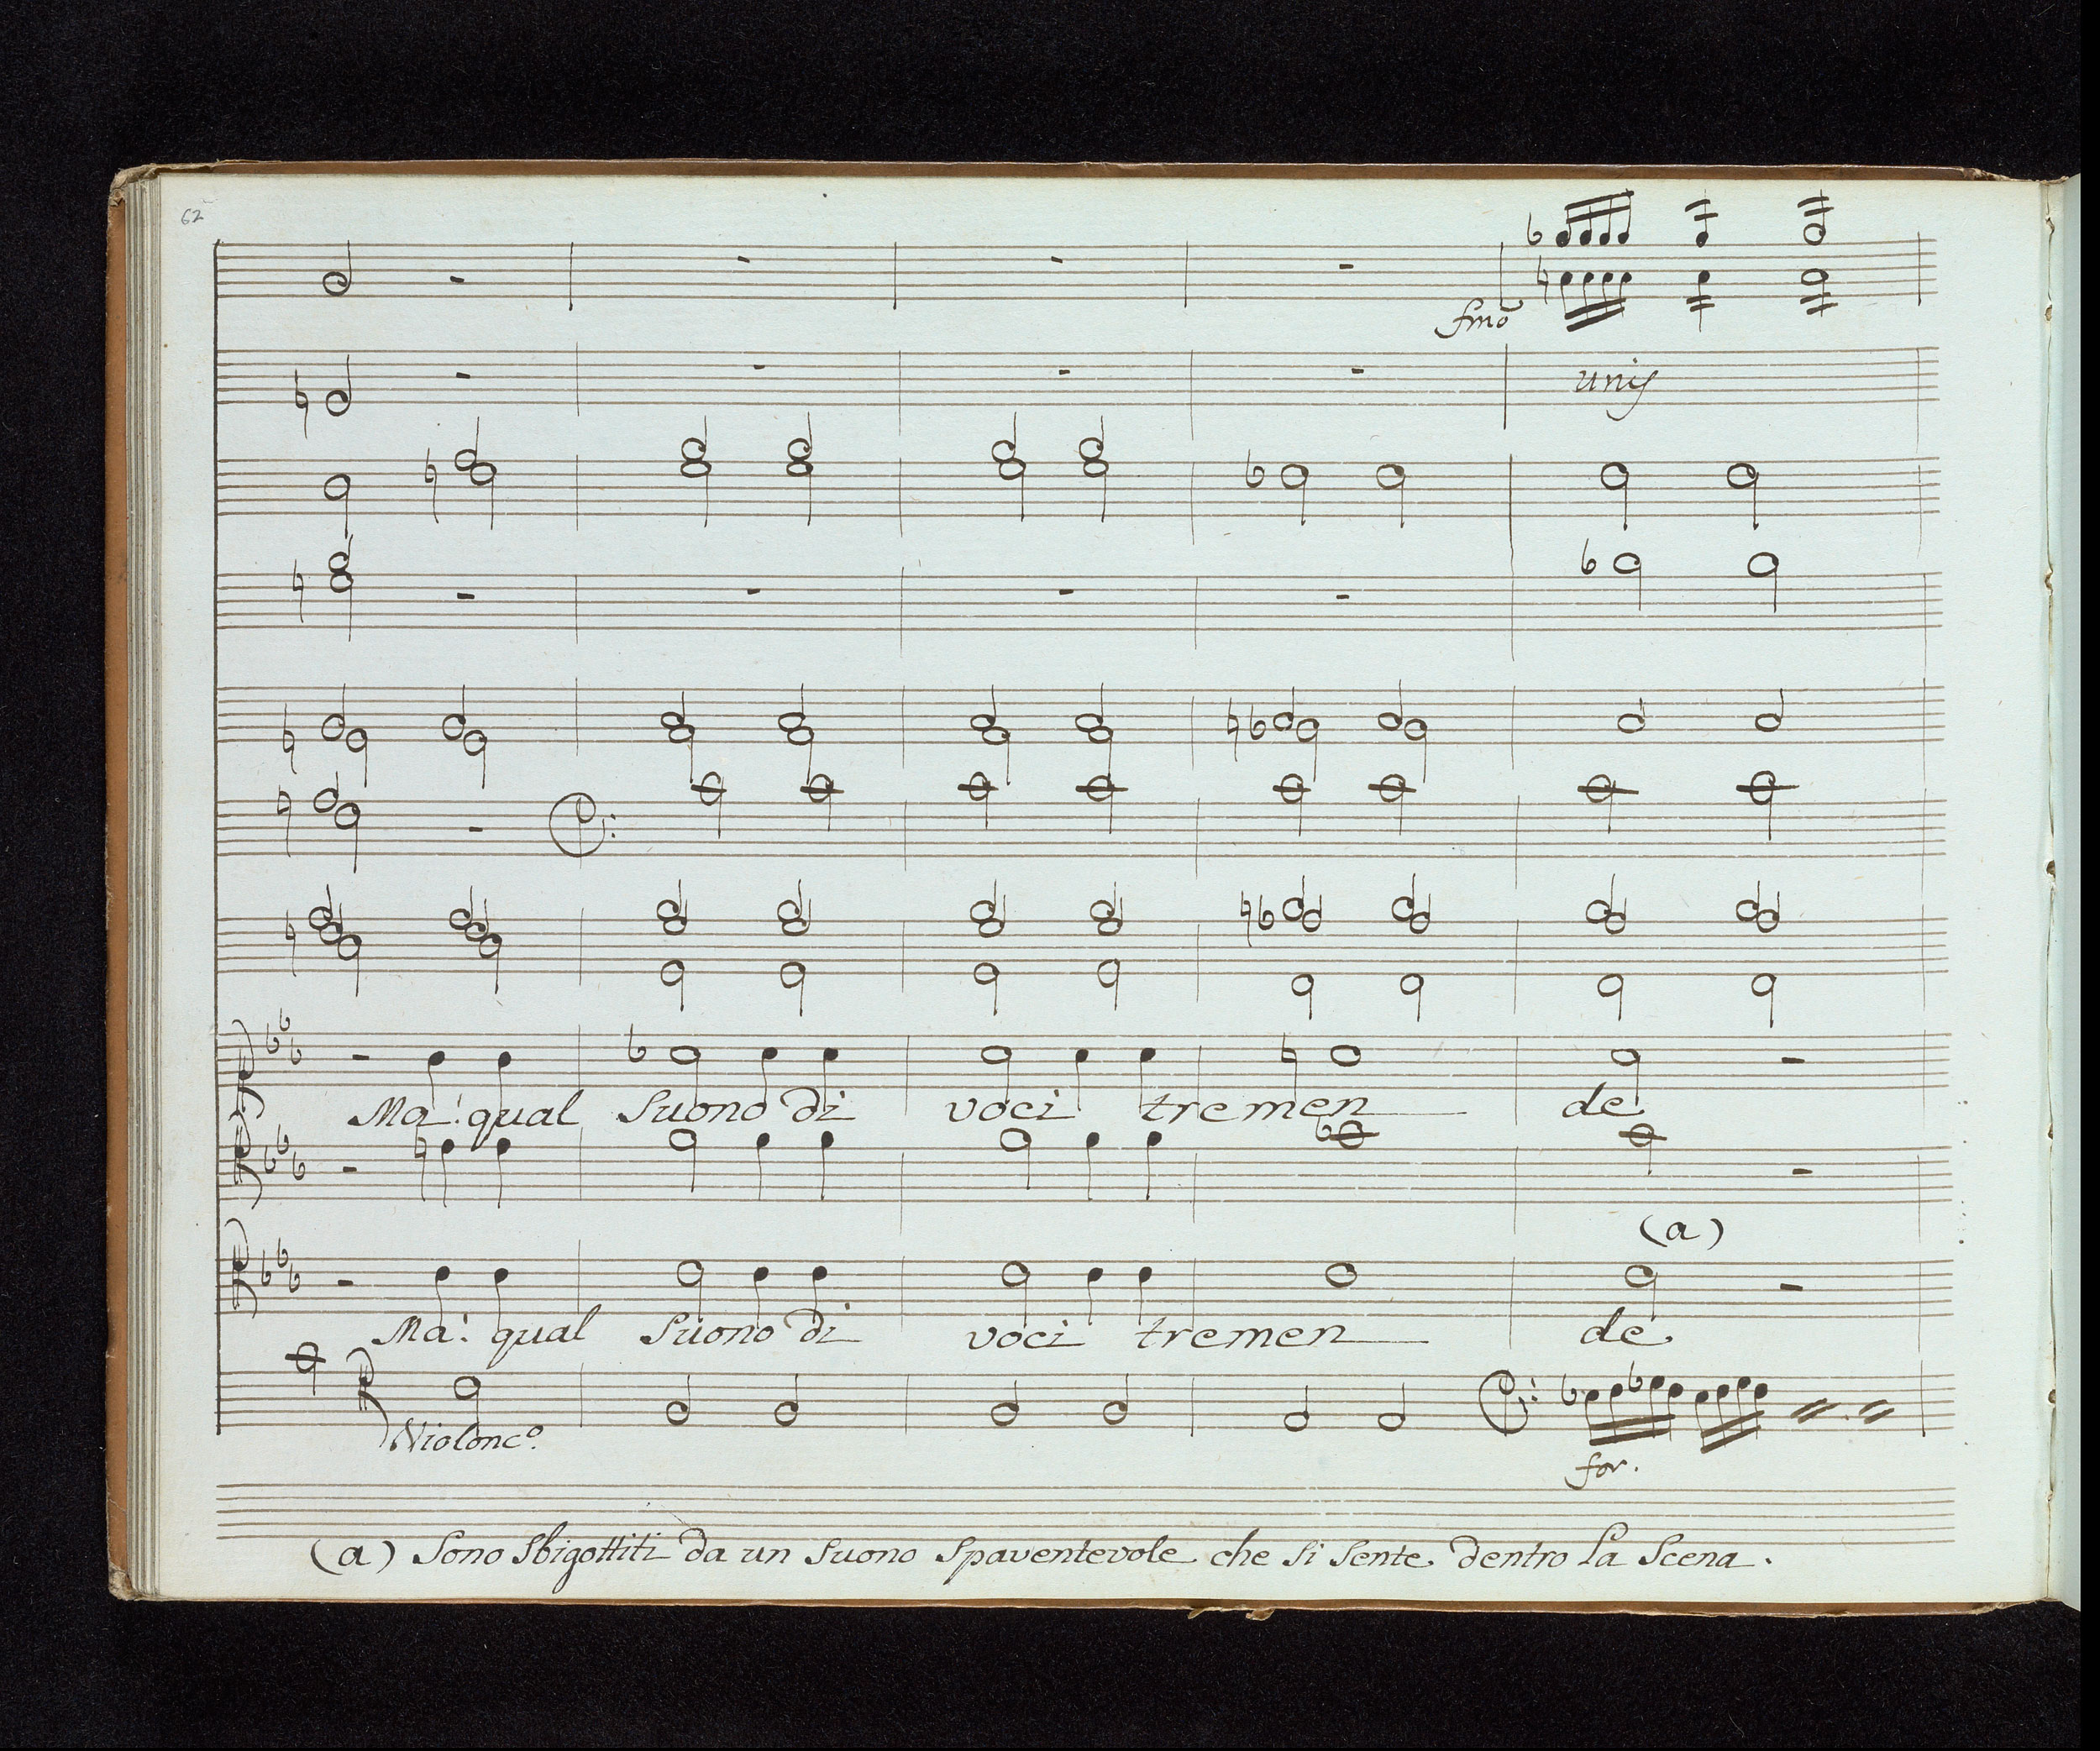 62
fmo
unis
Ma! qual Suono di voci tremen de
(a)
Ma! qual Suono di voci tremen de
Violonco.
for.
(a) Sono Sbigottiti da un suono Spaventevole che si sente dentro La Scena.